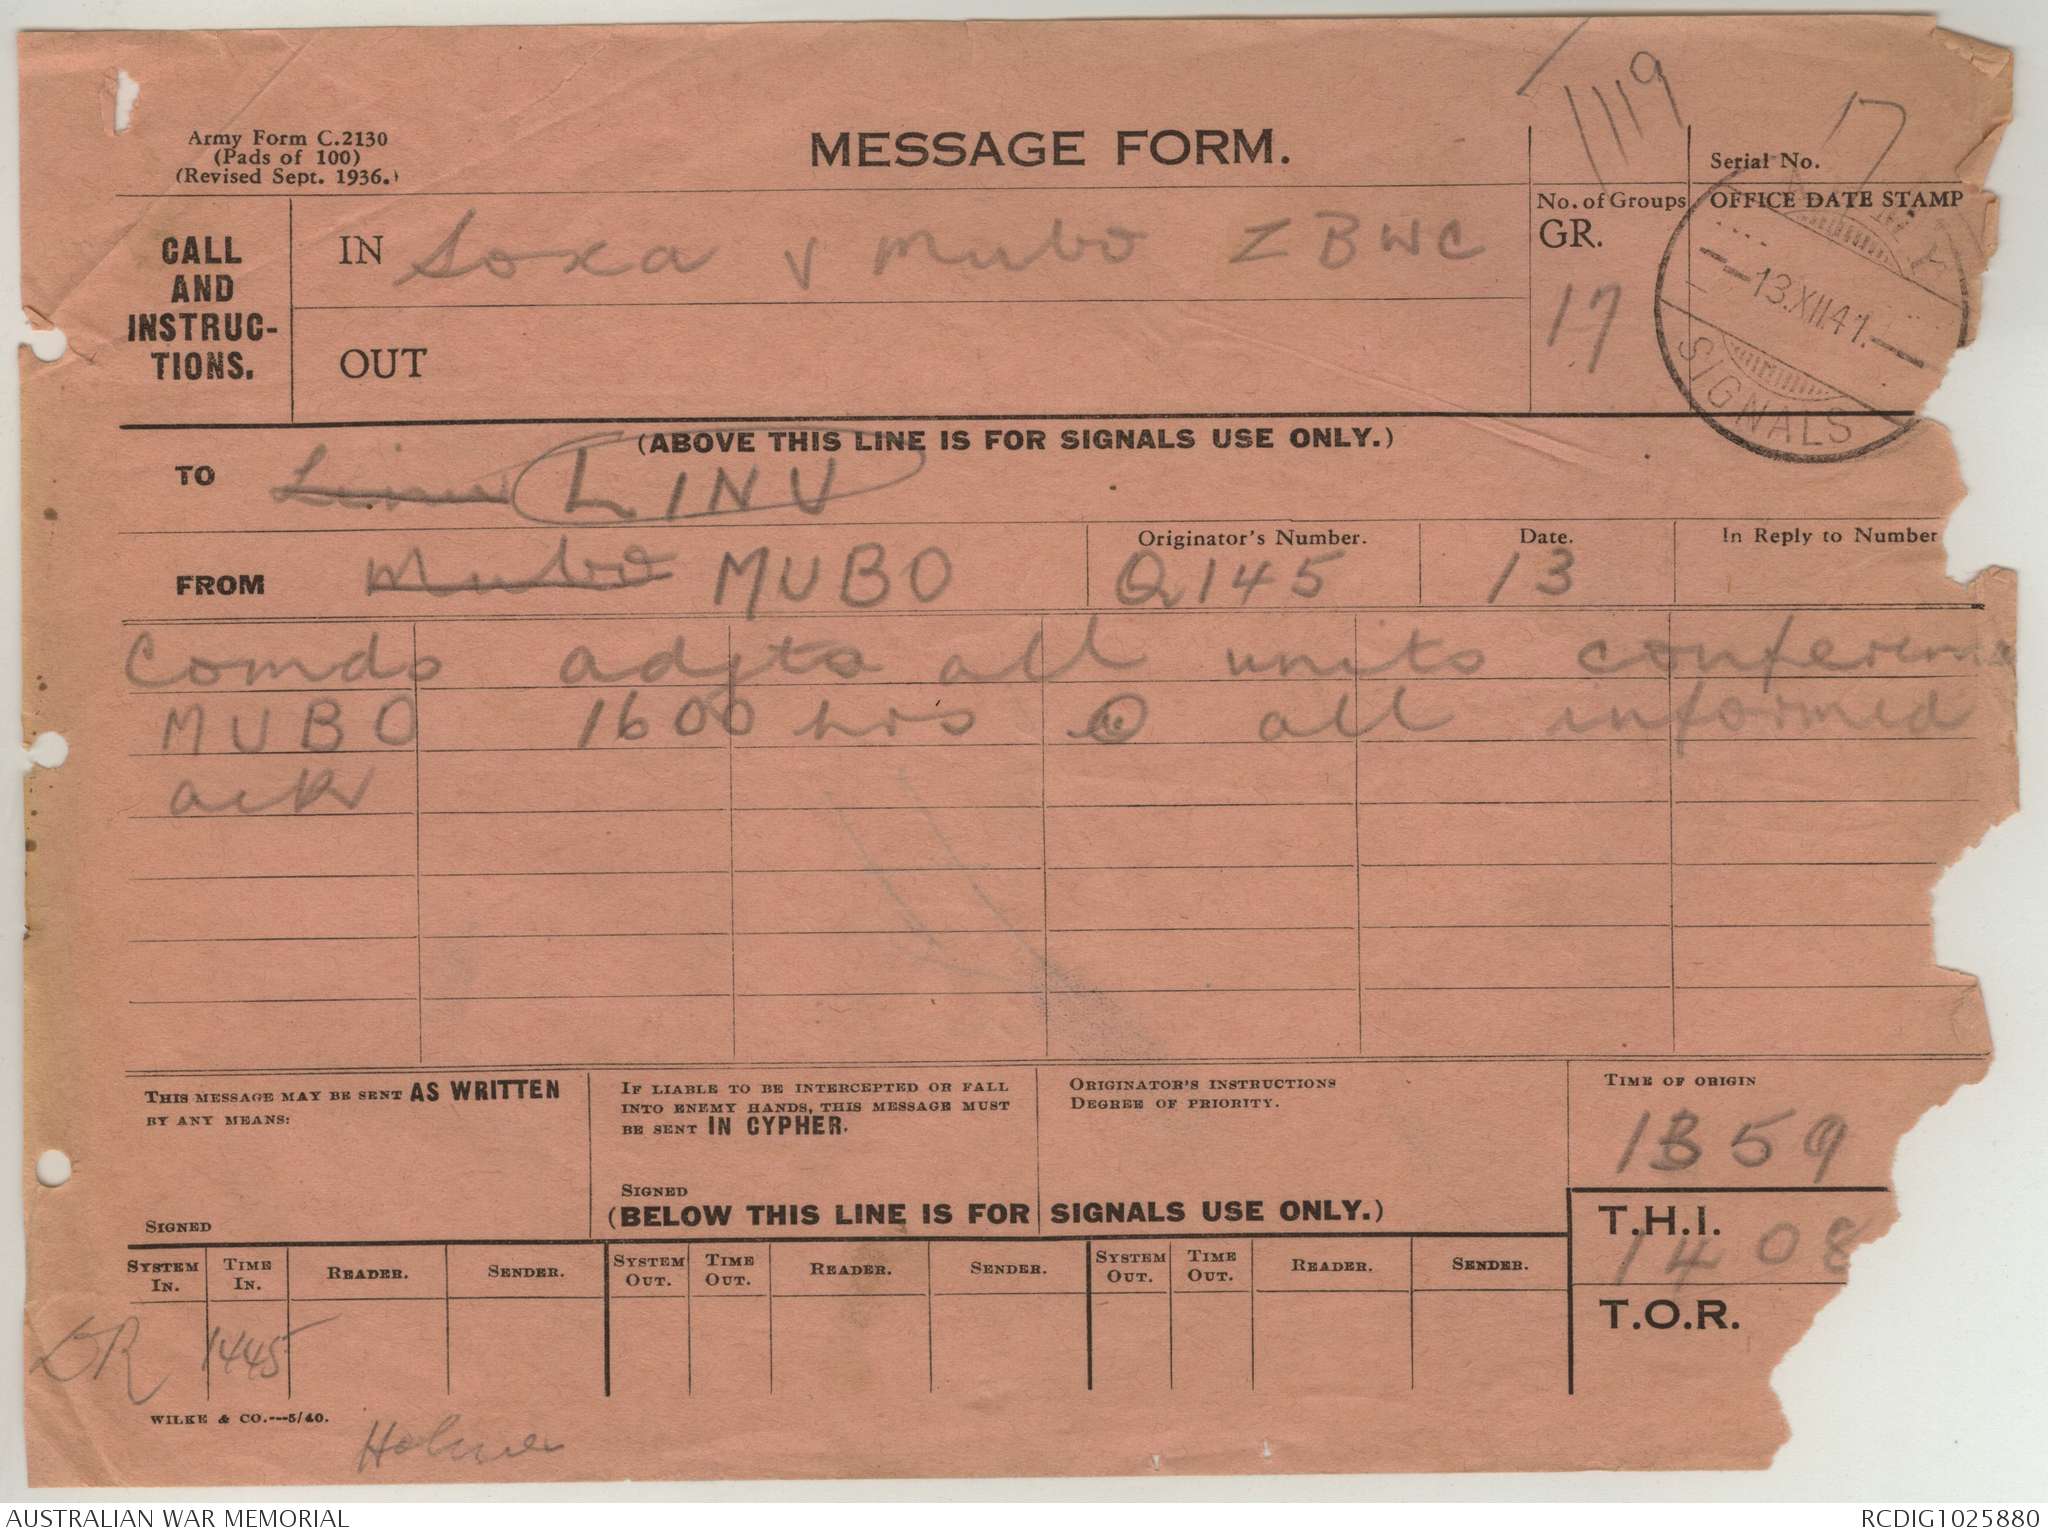 Army Form C.2130
(Pads of 100)
(Revised Sept. 1936.)
MESSAGE FORM.
1119
Serial No. 17
CALL AND INSTRUC-TIONS.
IN Soxa v Mubo ZBWC
OUT
No. of Groups
GR.
17
OFFICE DATE STAMP
13.XII.41.
SIGNALS
(ABOVE THIS LINE IS FOR SIGNALS USE ONLY.)
TO LINU
FROM Mubo MUBO
Originator's Number.
Q145
Date.
13
In Reply to Number
Comds adjts all units
MUBO 1600 hrs all informed
ack
THIS MESSAGE MAY BE SENT AS WRITTEN
BY ANY MEANS:
SIGNED
IF LIABLE TO BE INTERCEPTED OR FALL
INTO ENEMY HANDS, THIS MESSAGE MUST
BE SENT IN CYPHER.
SIGNED
ORIGINATOR'S INSTRUCTIONS
DEGREE OF PRIORITY.
TIME OF ORIGIN
1359
(BELOW THIS LINE IS FOR SIGNALS USE ONLY.)
T.H.I.
1408
T.O.R.
SYSTEM IN. TIME IN. READER. SENDER. SYSTEM OUT. TIME OUT. READER. SENDER. SYSTEM OUT. TIME OUT. READER. SENDER.
DR 1445
WILKE & CO.---5/40.
AUSTRALIAN WAR MEMORIAL
RCDIG1025880